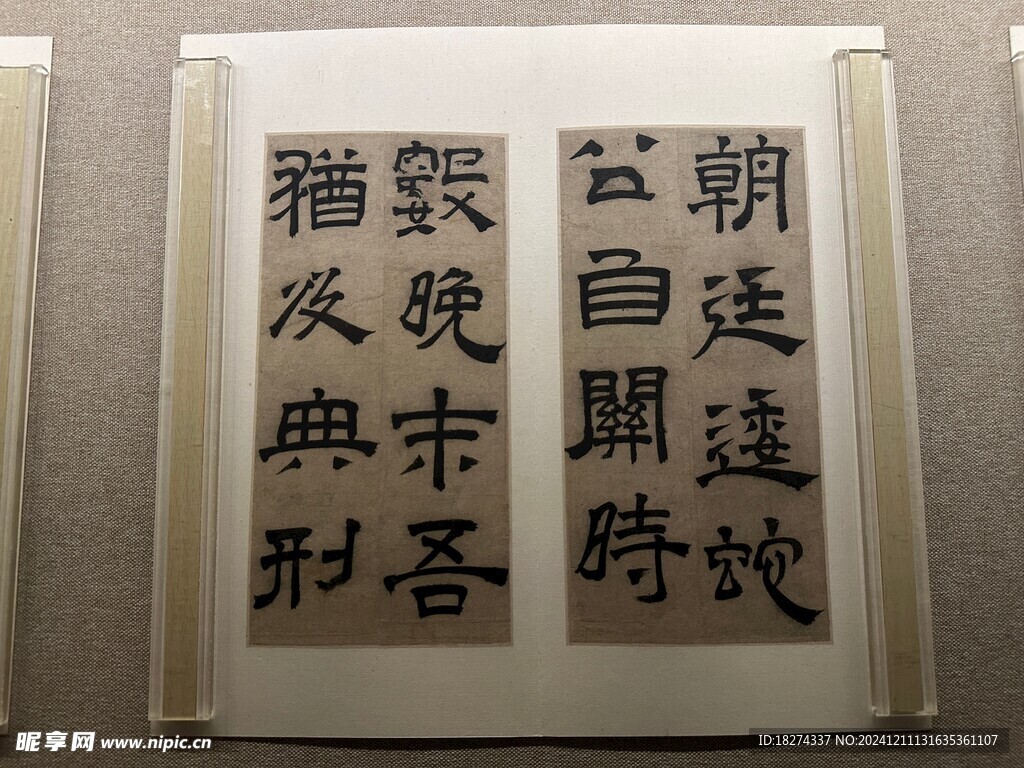 朝廷逶蛇
公自關時
數晚末吾
猶及典刑
昵享网 www.nipic.cn
ID:18274337 NO:20241211131635361107